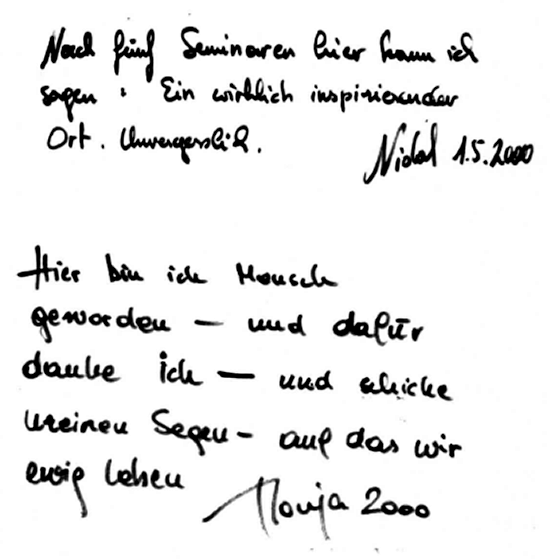 Nach fünf Seminaren hier kann ich
sagen: Ein wirklich inspirierender
Ort. Unvergesslich.
Nidal 1.5.2000
Hier bin ich Mensch
geworden – und dafür
danke ich – und schicke
meinen Segen – auf das wir
ewig leben
2000